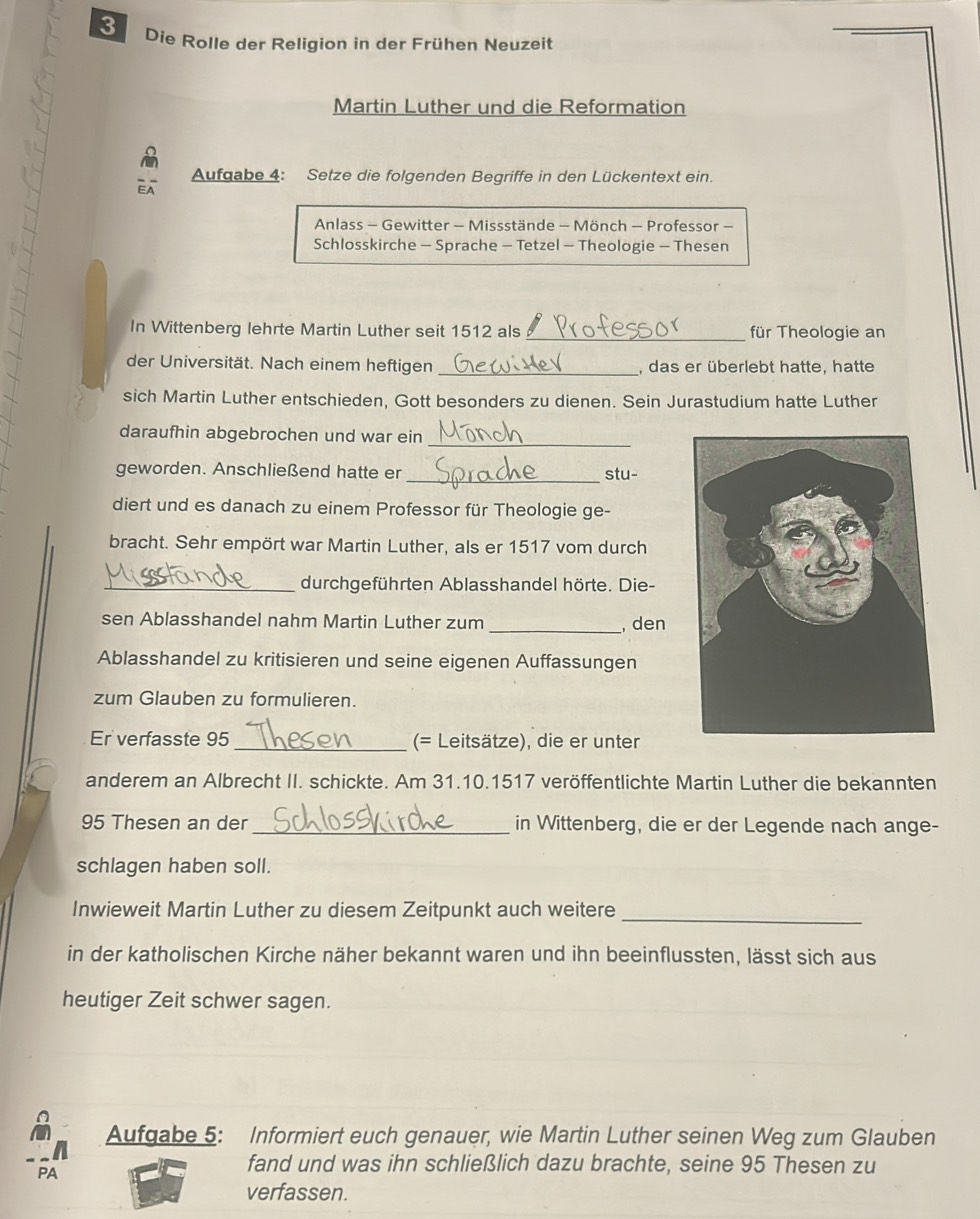 3 Die Rolle der Religion in der Frühen Neuzeit
Martin Luther und die Reformation
EA
Aufgabe 4: Setze die folgenden Begriffe in den Lückentext ein.
Anlass – Gewitter – Missstände – Mönch – Professor –
Schlosskirche – Sprache – Tetzel – Theologie – Thesen
In Wittenberg lehrte Martin Luther seit 1512 als Professor für Theologie an
der Universität. Nach einem heftigen Gewitter, das er überlebt hatte, hatte
sich Martin Luther entschieden, Gott besonders zu dienen. Sein Jurastudium hatte Luther
daraufhin abgebrochen und war ein Mönch
geworden. Anschließend hatte er Sprache stu-
diert und es danach zu einem Professor für Theologie ge-
bracht. Sehr empört war Martin Luther, als er 1517 vom durch
Missstände durchgeführten Ablasshandel hörte. Die-
sen Ablasshandel nahm Martin Luther zum ____________, den
Ablasshandel zu kritisieren und seine eigenen Auffassungen
zum Glauben zu formulieren.
Er verfasste 95 Thesen (= Leitsätze), die er unter
anderem an Albrecht II. schickte. Am 31.10.1517 veröffentlichte Martin Luther die bekannten
95 Thesen an der Schlosskirche in Wittenberg, die er der Legende nach ange-
schlagen haben soll.
Inwieweit Martin Luther zu diesem Zeitpunkt auch weitere ____________
in der katholischen Kirche näher bekannt waren und ihn beeinflussten, lässt sich aus
heutiger Zeit schwer sagen.
PA
Aufgabe 5: Informiert euch genauer, wie Martin Luther seinen Weg zum Glauben
fand und was ihn schließlich dazu brachte, seine 95 Thesen zu
verfassen.